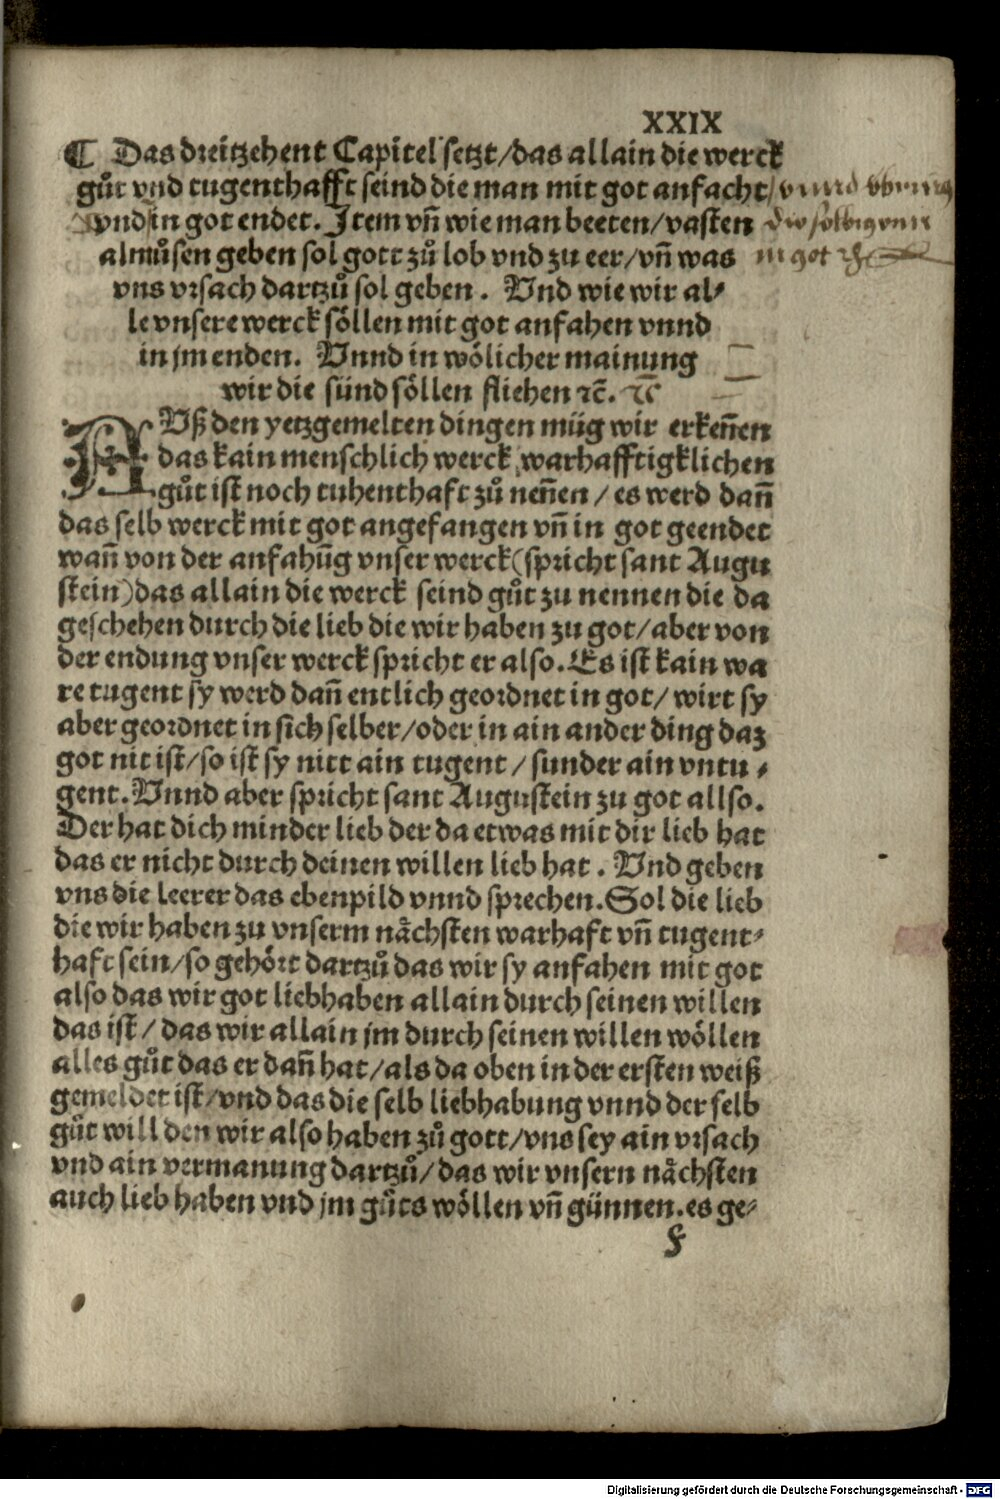 XXIX
¶ Das dreitzehent Capitel setzt/das allain die werck
gůt vnd tugenthafft seind die man mit got anfacht/
vnd in got endet. Item vn̄ wie man beeten/vasten
almůsen geben sol gott zů lob vnd zu eer/vn̄ was
in got
vns vrsach dartzů sol geben. Vnd wie wir al⸗
le vnsere werck söllen mit got anfahen vnnd
in jm enden. Vnnd in wölicher mainung
wir die sünd söllen fliehen ꝛc̄. ꝛc̄
AVß den yetzgemelten dingen müg wir erkeñen
das kain menschlich werck warhafftigklichen
gůt ist noch tuhenthaft zů neñen/es werd dañ
das selb werck mit got angefangen vn̄ in got geendet
wañ von der anfahūg vnser werck(spricht sant Augu
stein)das allain die werck seind gůt zu nennen die da
geschehen durch die lieb die wir haben zu got/aber von
der endung vnser werck spricht er also. Es ist kain wa
re tugent sy werd dañ entlich geordnet in got/wirt sy
aber geordnet in sich selber/oder in ain ander ding daz
got nit ist/so ist sy nitt ain tugent/sunder ain vntu⸗
gent. Vnnd aber spricht sant Augustein zu got allso.
Der hat dich minder lieb der da etwas mit dir lieb hat
das er nicht durch deinen willen lieb hat. Vnd geben
vns die leerer das ebenpild vnnd sprechen. Sol die lieb
die wir haben zu vnserm nächsten warhaft vn̄ tugent⸗
haft sein/so gehört dartzů das wir sy anfahen mit got
also das wir got liebhaben allain durch seinen willen
das ist/das wir allain jm durch seinen willen wöllen
alles gůt das er dañ hat/als da oben in der ersten weiß
gemeldet ist/vnd das die selb liebhabung vnnd der selb
gůt will den wir also haben zů gott/vns sey ain vrsach
vnd ain vermanung dartzů/das wir vnsern nächsten
auch lieb haben vnd jm gůts wöllen vn̄ günnen. es ge⸗
f
Digitalisierung gefördert durch die Deutsche Forschungsgemeinschaft - DFG